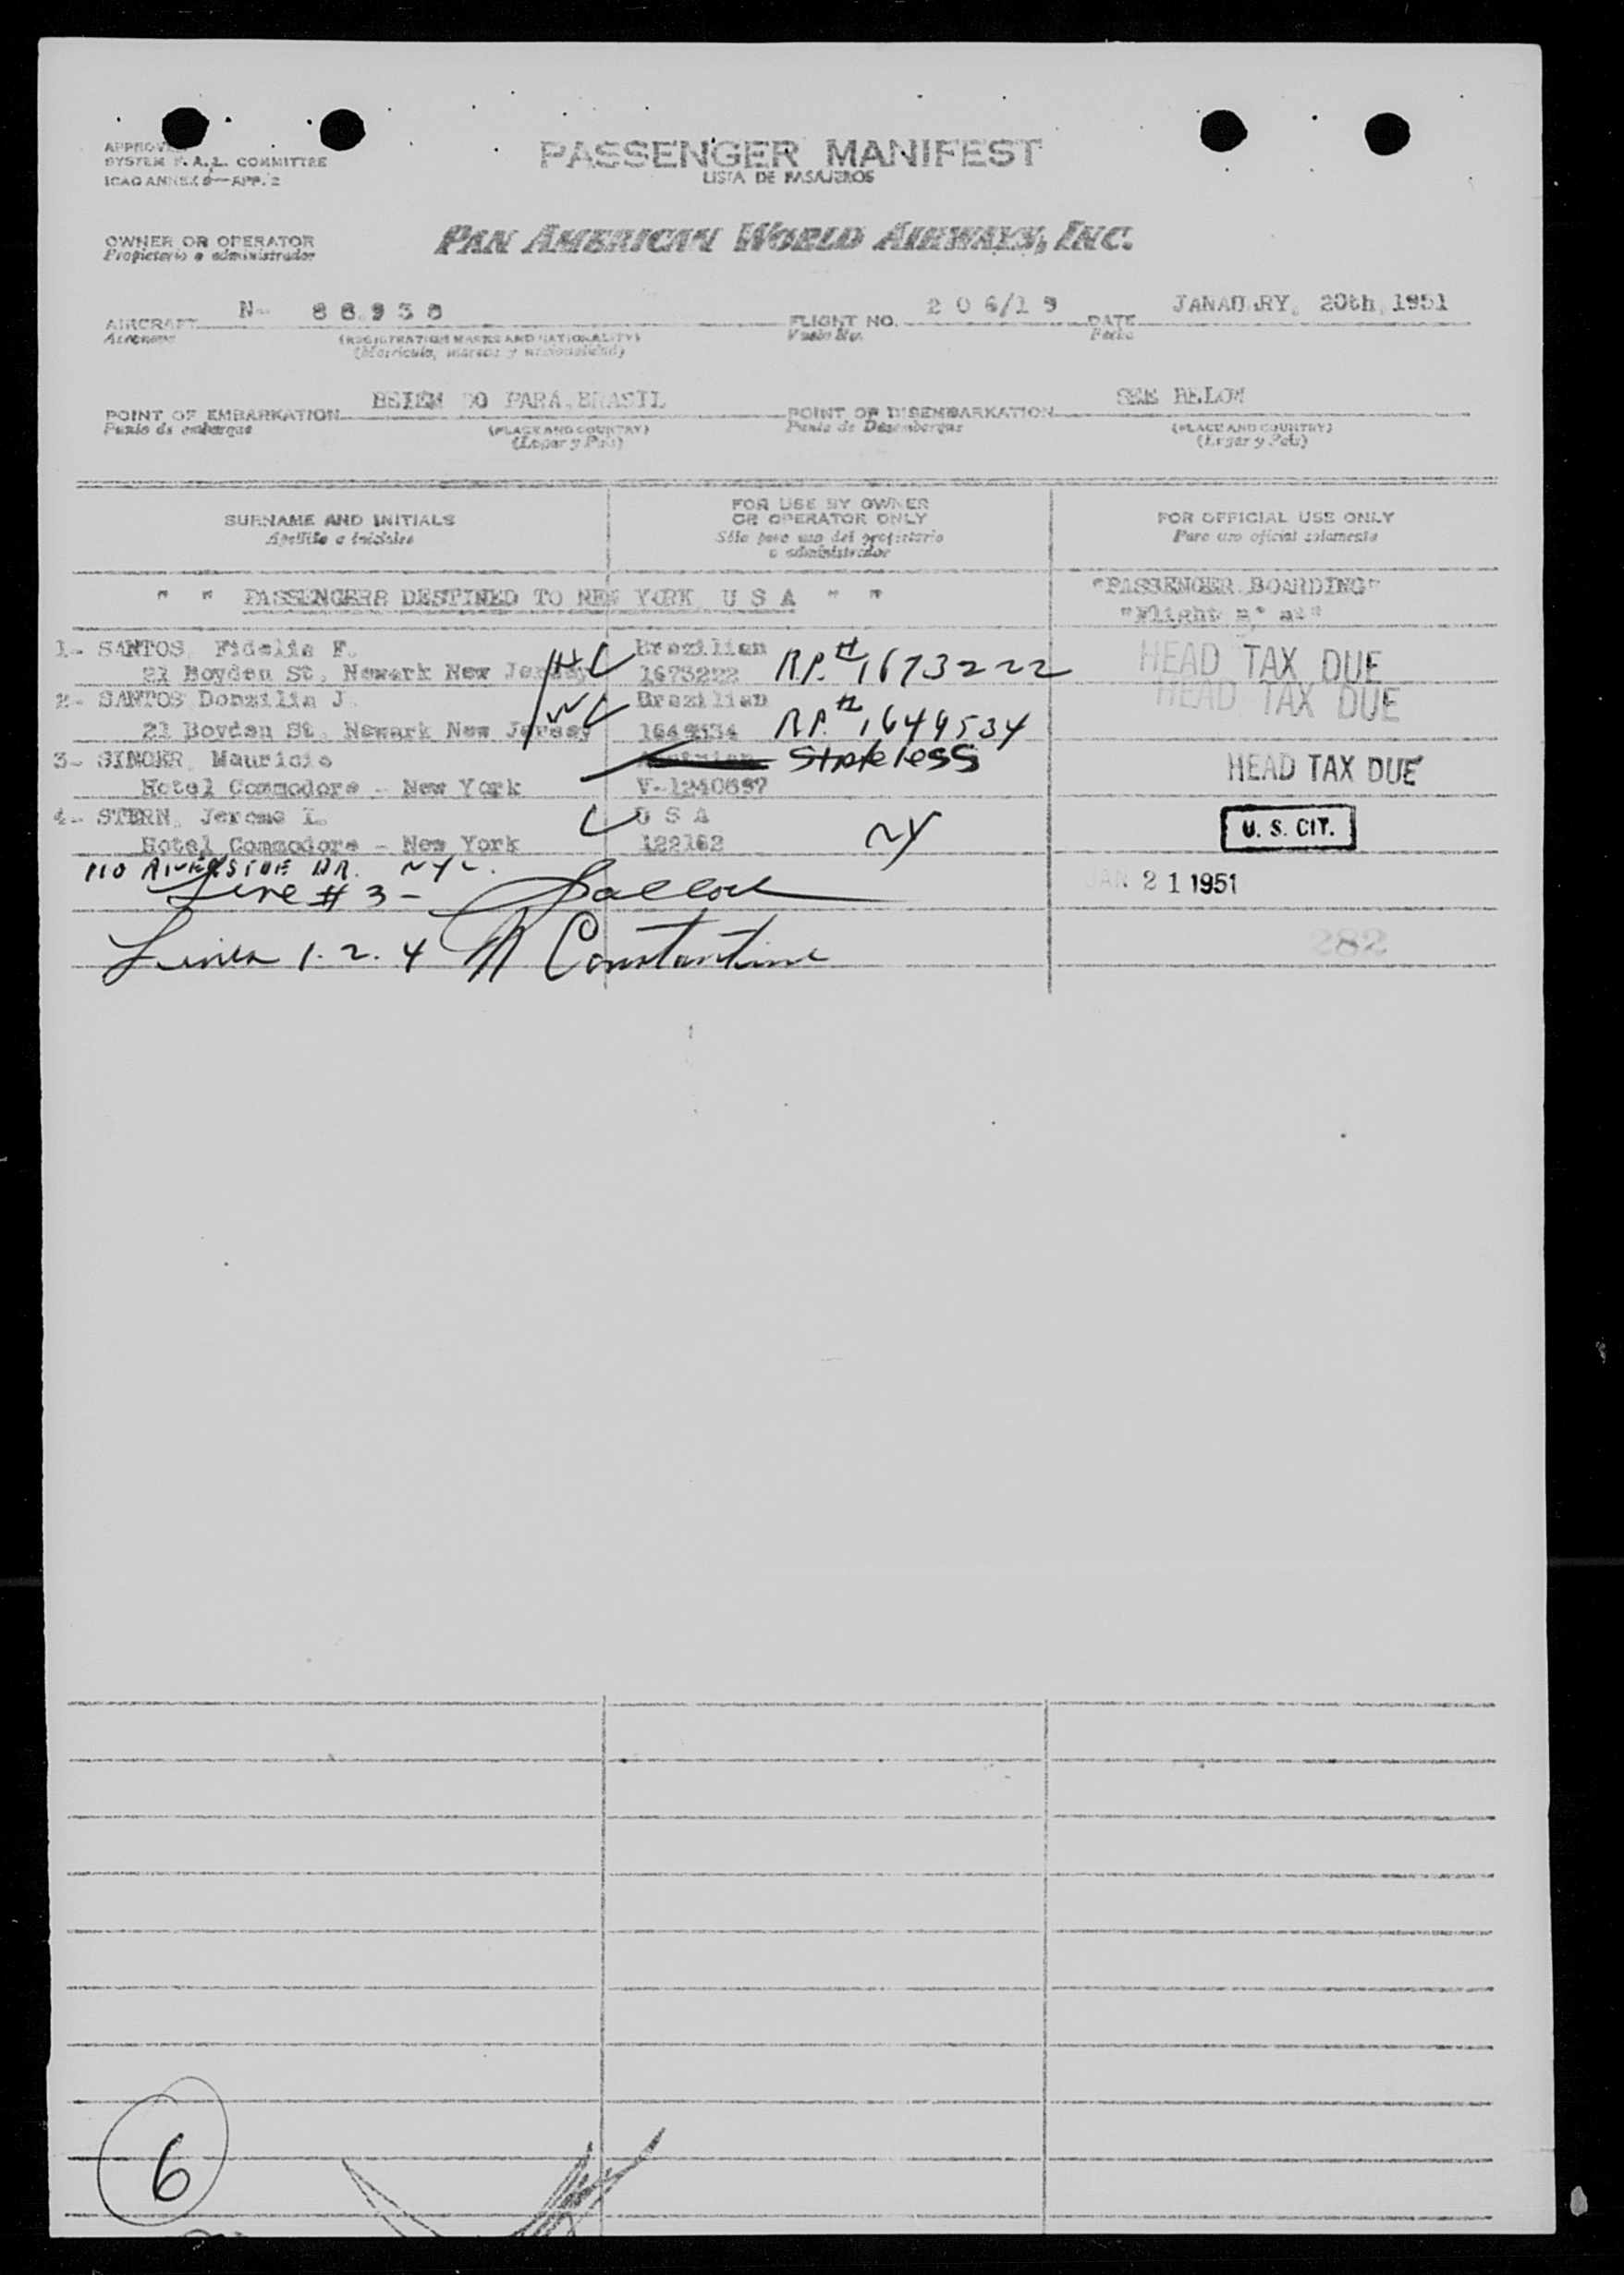 APPROVED
SYSTEM F. A. L. COMMITTEE
ICAO ANNEX 9—APP. 2
PASSENGER MANIFEST
LISTA DE PASAJEROS
OWNER OR OPERATOR
Propietario o administrador
PAN AMERICAN WORLD AIRWAYS, INC.
AIRCRAFT N- 88938
Aeronave
(REGISTRATION MARKS AND NATIONALITY)
(Matricula, marcas y nacionalidad)
FLIGHT NO. 206/19
Vuelo No.
DATE JANAUARY, 20th, 1951
Fecha
POINT OF EMBARKATION BELEM DO PARA, BRASIL
Punto de embarque
(PLACE AND COUNTRY)
(Lugar y País)
POINT OF DISEMBARKATION SEE BELOW
Punto de Desembarque
(PLACE AND COUNTRY)
(Lugar y País)
SURNAME AND INITIALS
Apellido e iniciales
FOR USE BY OWNER
OR OPERATOR ONLY
Sólo para uso del propietario
o administrador
FOR OFFICIAL USE ONLY
Para uso oficial solamente
" " PASSENGERR DESTINED TO NEW YORK U S A " "
"PASSENGER BOARDING"
1- SANTOS, Fidelis F. Brazilian
21 Boyden St, Newark New Jersey 1673222 R.P.# 1673222 HEAD TAX DUE
2- SANTOS Donzilia J. Brazilian HEAD TAX DUE
21 Boyden St, Newark New Jersey 1649534 R.P.# 1649534
3- SINGER, Mauricio Stateless HEAD TAX DUE
Hotel Commodore - New York V-1240697
4- STERN, Jerome L. U S A U. S. CIT.
Hotel Commodore - New York 122162 NY
110 RIVERSIDE DR. NYC.
Line # 3 - JAN 21 1951
Lines 1. 2. 4 Constantine 282
6